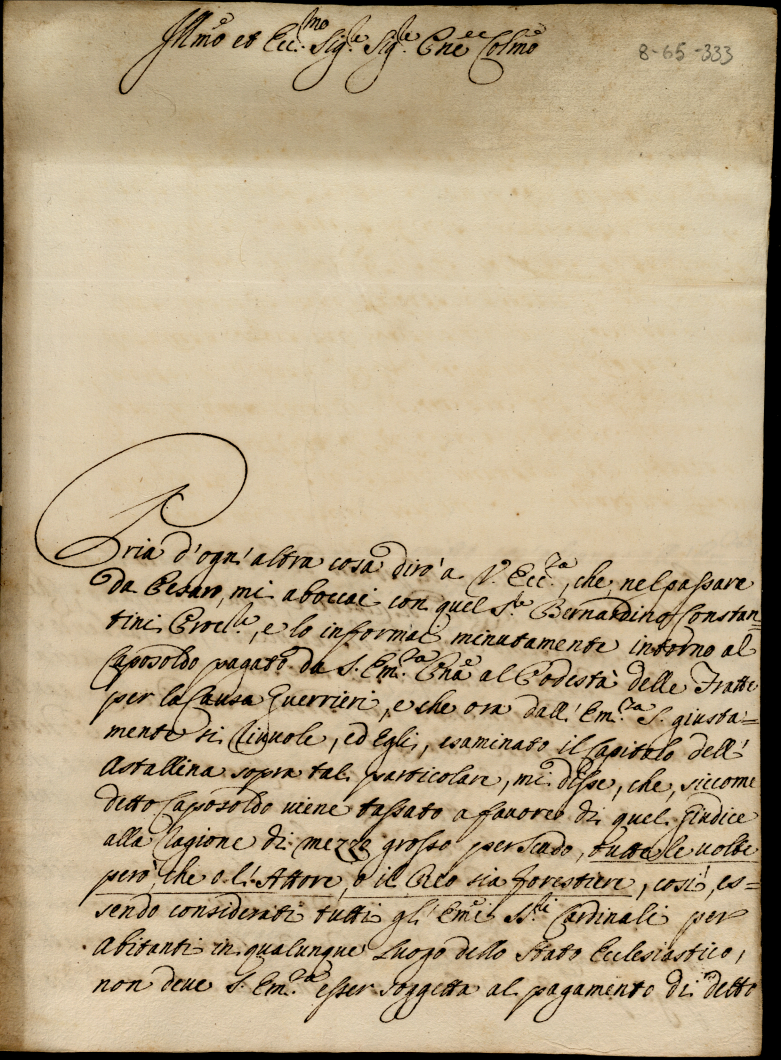 Ill.mo et Ecc.mo Sig.re Sig.re Pne Colmo
8-65-333
Pria d'ogn'altra cosa dirò a V. Ecc.za, che, nel passare
da Pesaro, mi aboccai con quel S.re Bernardino Constan=
tini Proc.re, e lo informai minutamente intorno al
Caposoldo pagato da S. Em.za Pna al Podestà delle Fratte
per la Causa Guerrieri, e che ora dall'Em.za S. giusta=
mente si rivuole, ed Egli, esaminato il Capitolo dell'
Astallina sopra tal particolare, mi disse, che, siccome
detto Caposoldo viene tassato a favore di quel Giudice
alla ragione di mezzo grosso per scudo, tutte le volte
però, che o l'Attore, o il Reo sia forestiere, così, es=
sendo considerati tutti gl'Emi S.ri Cardinali per
Abitanti in qualunque Luogo dello Stato Ecclesiastico,
non deve S. Em.za esser soggetta al pagamento di detto